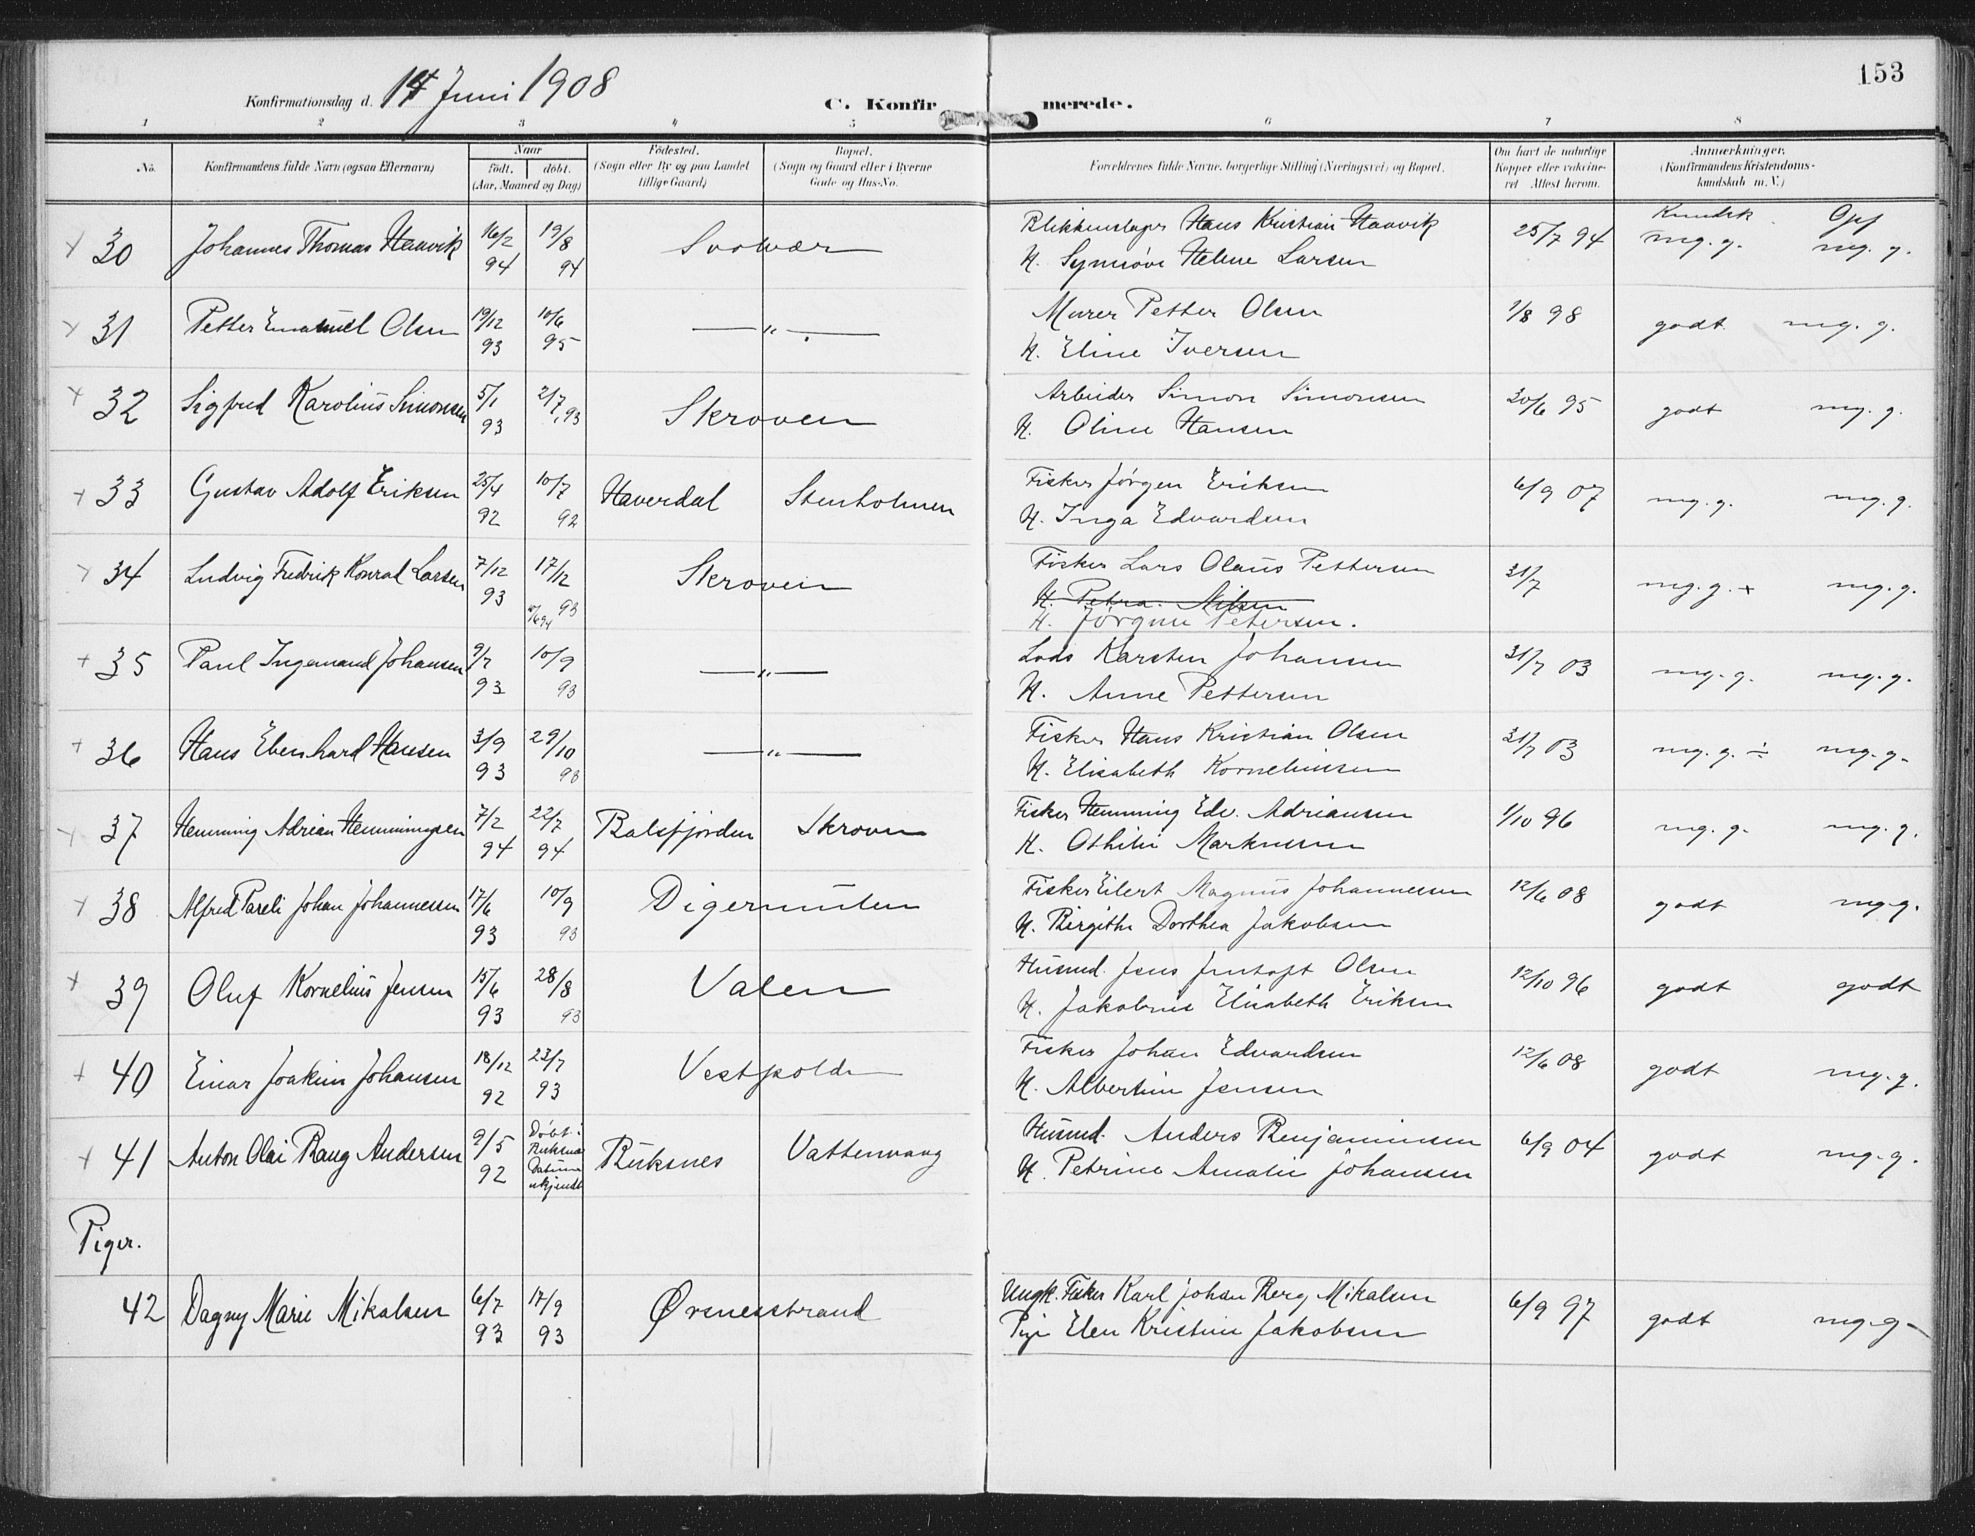 153
Konfirmationsdag d. 14 Juni 1908 C. Konfirmerede.
1 2 3 4 5 6 7 8
No. Konfirmandens fulde Navn (ogsaa Efternavn) Naar födt. döbt. (Aar, Maaned og Dag) Födested. (Sogn eller By og paa Landet tillige Gaard) Bopæl. (Sogn og Gaard eller i Byerne Gade og Hus-No. Forældrenes fulde Navne, borgerlige Stilling (Næringsvei) og Bopæl. Om havt de naturlige Kopper eller vakcineret. Attest herom. Anmærkninger. (Konfirmandens Kristendomskundskab m. V.)
Kundsk. Opf
30 Johannes Thomas Haavik 16/2 94 19/8 94 Svolvær Blikkenslager Hans Kristian Haavik 25/7 94 mg. g. mg. g.
H. Synnöve Helene Larsen
31 Petter Emanuel Olsen 19/12 93 10/6 95 —"— Murer Petter Olsen 1/8 98 godt mg. g.
H. Eline Iversen
32 Sigfred Karolius Simonsen 5/1 93 2/7 93 Skroven Arbeider Simon Simonsen 30/6 95 godt mg. g.
H. Oline Hansen
33 Gustav Adolf Eriksen 25/4 92 10/7 92 Haverdal Stenholmen Fisker Jörgen Eriksen 6/9 07 mg. g. mg. g.
H. Inga Edvardsen
34 Ludvig Fredrik Konrad Larsen 7/12 93 17/12 93 Skroven Fisker Lars Olaus Pettersen 31/7 mg. g. + mg. g.
H. Petra Nilsen
H. Jörgine Petersen.
35 Paul Ingemand Johansen 9/7 93 10/9 93 —"— Lods Karsten Johansen 31/7 03 mg. g. mg. g.
H. Anne Pettersen
36 Hans Ebenhard Hansen 3/9 93 29/10 93 —"— Fisker Hans Kristian Olsen 31/7 03 mg. g. ÷ mg. g.
H. Elisabeth Korneliussen
37 Hemming Adrian Hemmingsen 7/2 94 22/7 94 Balsfjorden Skroven Fisker Hemming Edv. Adriansen 1/10 96 mg. g. mg. g.
H. Othilie Markussen
38 Alfred Pareli Johan Johannessen 17/6 93 10/9 93 Digermulen Fisker Eilert Magnus Johannessen 12/6 08 godt mg. g.
H. Birgithe Dorthea Jakobsen
39 Oluf Kornelius Jensen 15/6 93 28/8 93 Valen Husmd. Jens Jentoft Olsen 12/10 96 godt godt
H. Jakobine Elisabeth Eriksen
40 Einar Joakim Johansen 18/12 92 23/7 93 Vestpolden Fisker Johan Edvardsen 12/6 08 godt mg. g.
H. Albertine Jensen
41 Anton Olai Bang Andersen 9/5 92 Döbt i Buksnæs Datum ukjendt Buksnes Vattenvaag Husmd. Anders Benjaminsen 6/9 04 godt mg. g.
H. Petrine Amalie Johansen
Piger.
42 Dagny Marie Mikalsen 6/7 93 17/9 93 Örsnesstrand Ungk. Fisker Karl Johan Berg Mikalsen 6/9 97 godt mg. g.
Pige Elen Kristine Jakobsen